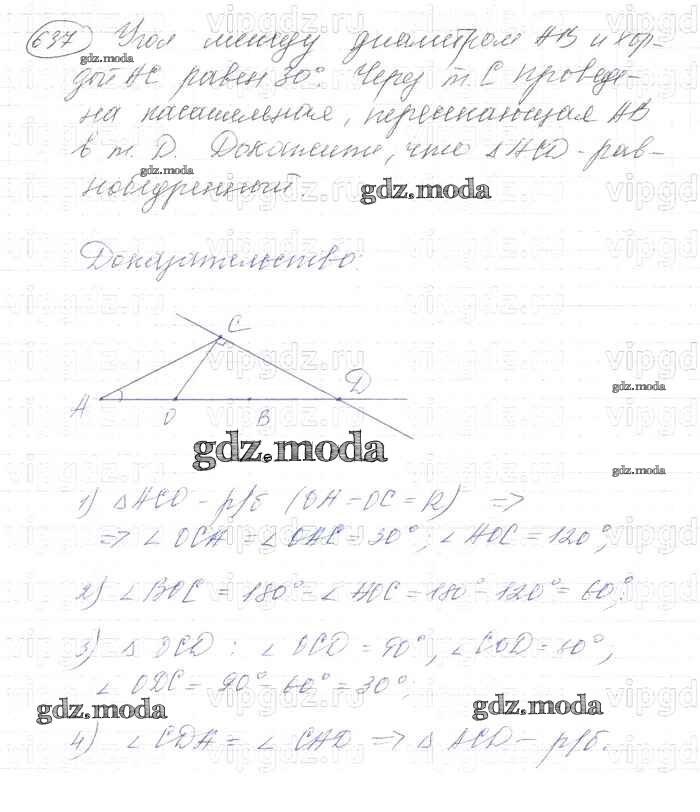 637 Угол между диаметром AB и хор-
дой AC равен 30°. Через т. C проведе-
на касательная, пересекающая AB
в т. D. Докажите, что △ACD - рав-
нобедренный.
Доказательство:
C
A
O
B
D
1) △ACO - р/б (OA = OC = R) =>
=> ∠OCA = ∠OAC = 30°; ∠AOC = 120°;
2) ∠BOC = 180° - ∠AOC = 180° - 120° = 60°;
3) △OCD : ∠OCD = 90°, ∠COD = 60°,
∠ODC = 90° - 60° = 30°;
4) ∠CDA = ∠CAD => △ACD - р/б.
gdz.moda
gdz.moda
gdz.moda
gdz.moda
gdz.moda
gdz.moda
gdz.moda
gdz.moda
vipgdz.ru